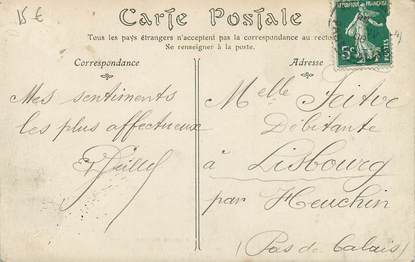 15 €
Carte Postale
Tous les pays étrangers n'acceptent pas la correspondance au recto
Se renseigner à la poste.
Correspondance
Adresse
REPUBLIQUE FRANÇAISE
5c
POSTES
Mes sentiments
les plus affectueux
Melle
Débitante
à Lisbourg
par Heuchin
(Pas de Calais)